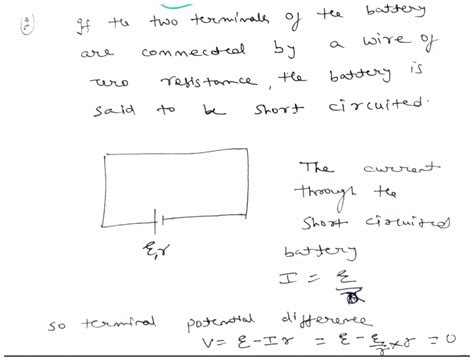 ② If the two terminals of the battery
are connected by a wire of
zero resistance, the battery is
said to be short circuited.
The current
through the
short circuited
battery
I = ℰ/r
ℰ,r
so terminal potential difference
V = ℰ - Ir = ℰ - ℰ/r × r = 0